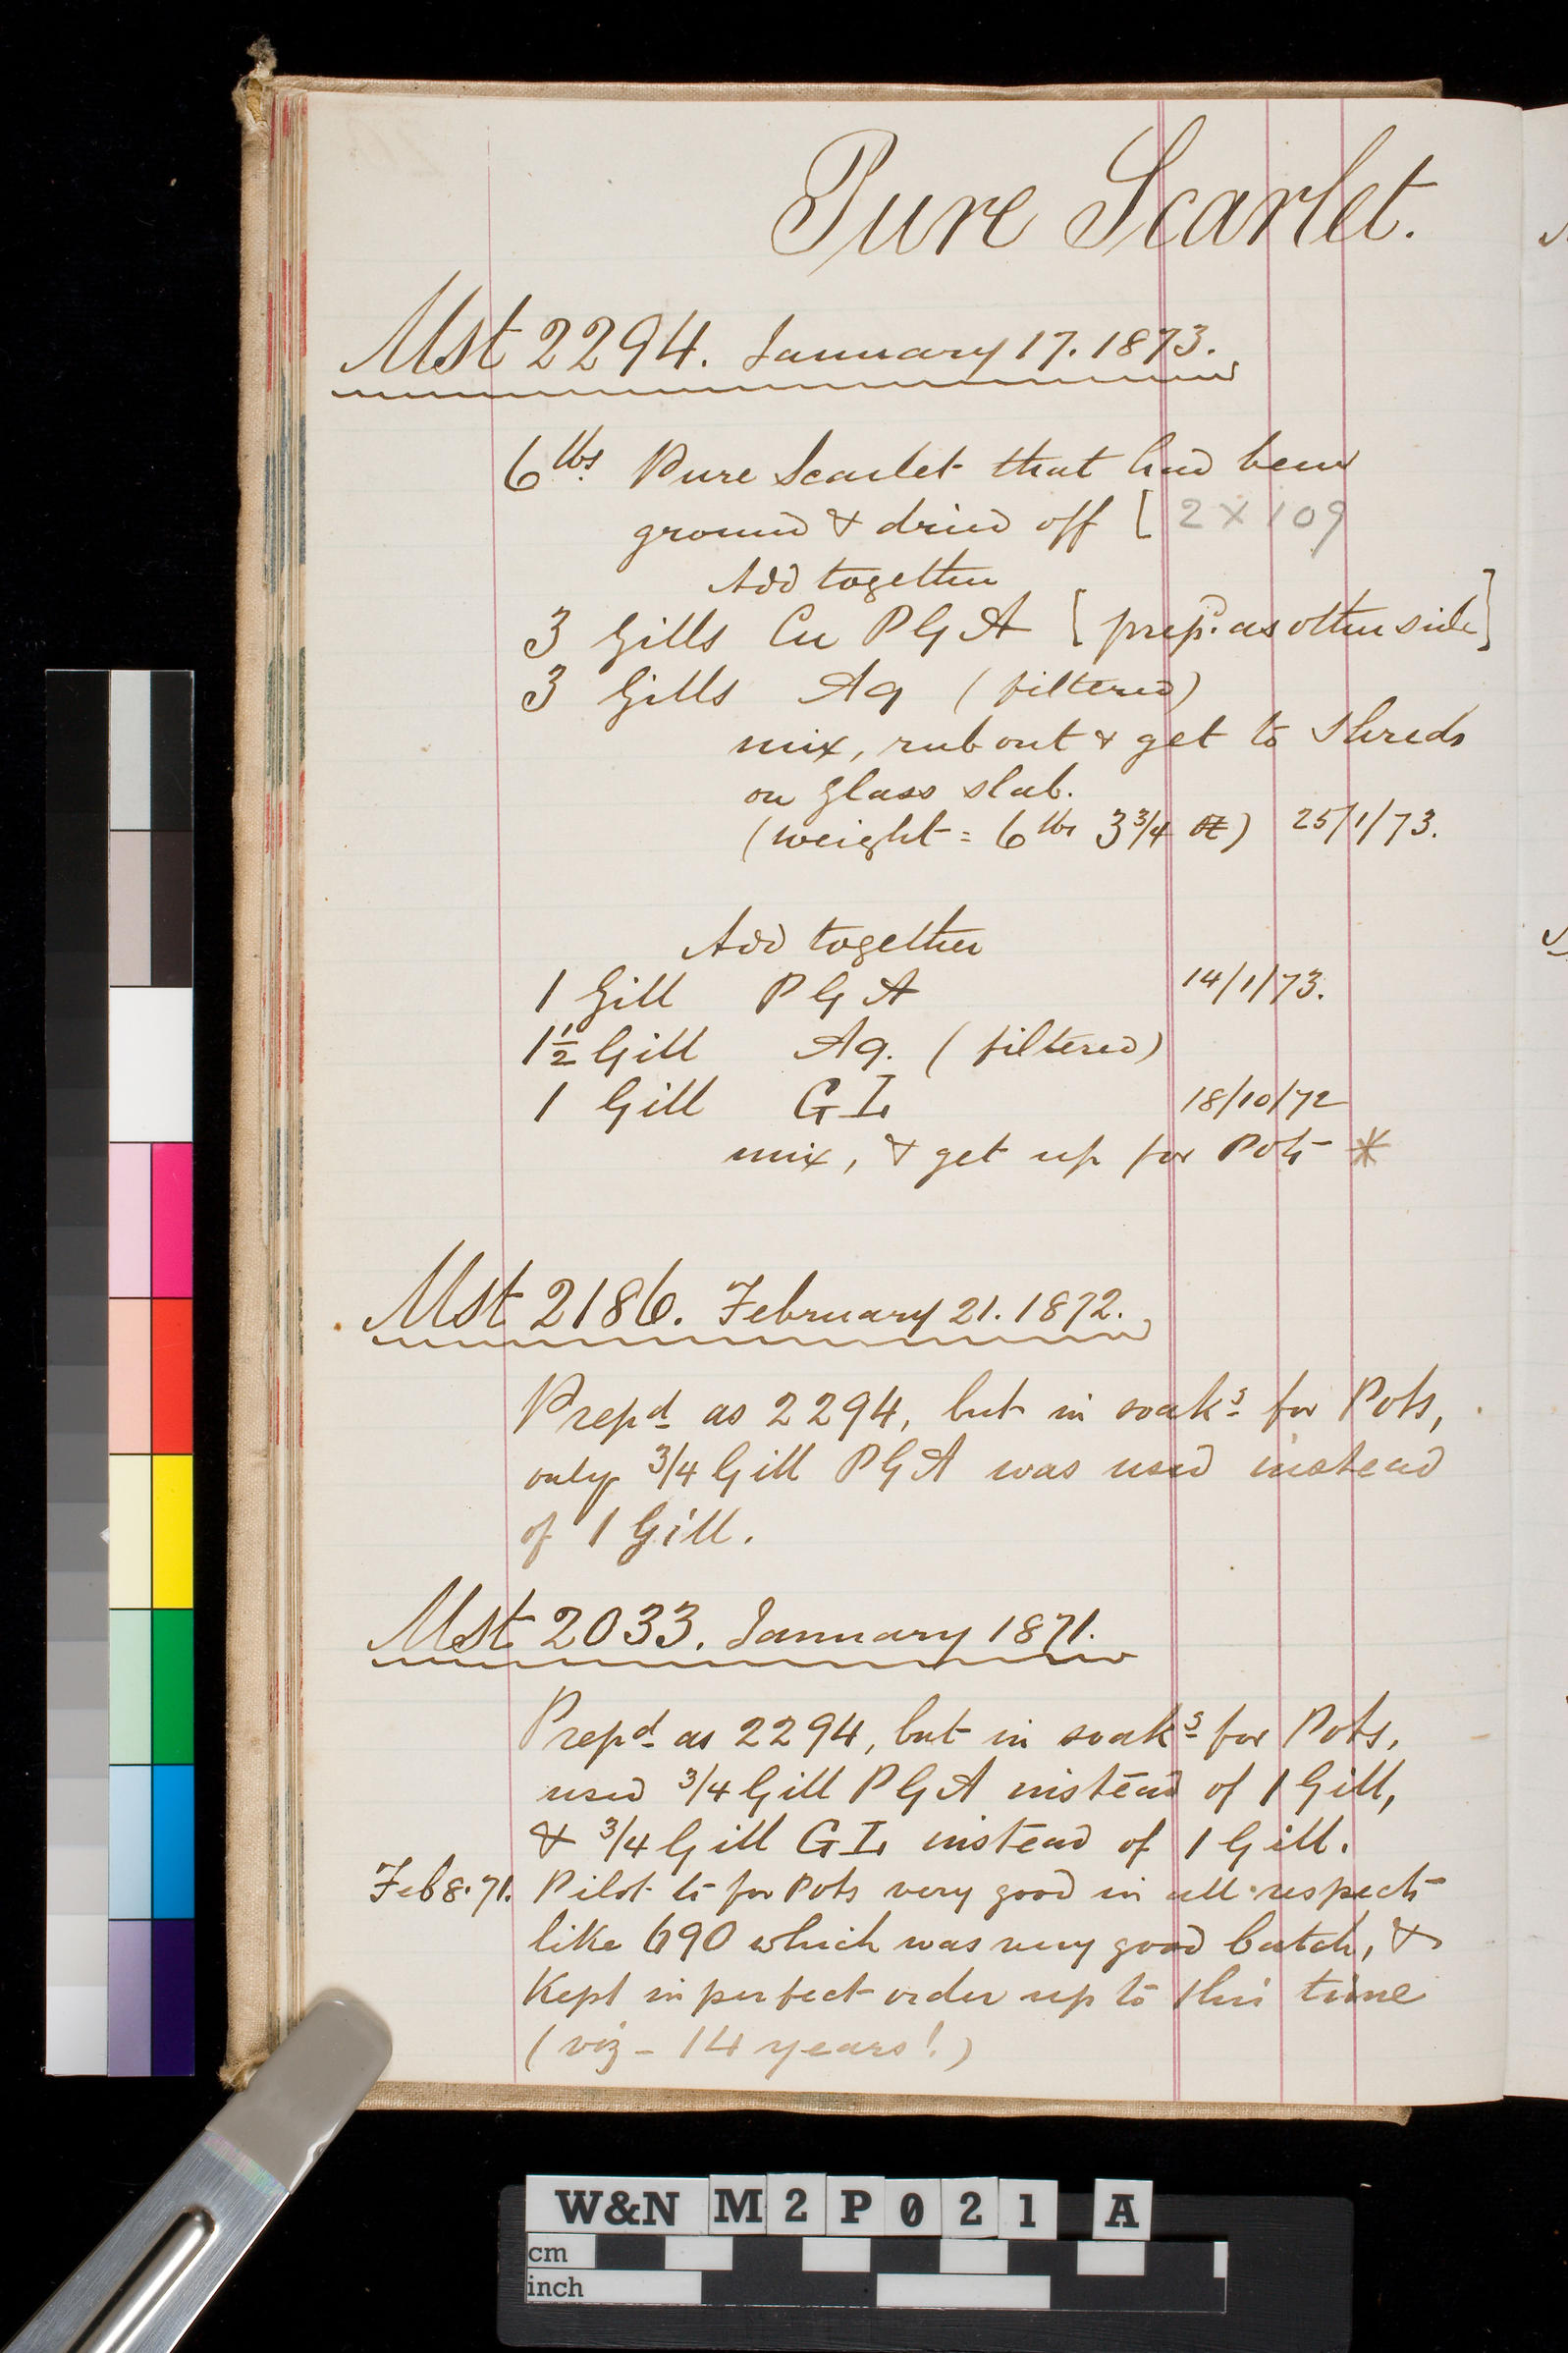 Pure Scarlet.
Mst 2294. January 17. 1873.
6 lbs. Pure Scarlet that had been
ground & dried off [ 2 X 109
Add together
3 Gills Cu P G A [ prepd. as other side ]
3 Gills Aq (filtered)
mix, rub out & get to shreds
on glass slab.
(weight = 6 lbs 3 3/4 oz) 25/1/73.
Add together
1 Gill P G A 14/1/73.
1 1/2 Gill Aq. (filtered)
1 Gill G L 18/10/72
mix, & get up for Pots *
Mst 2186. February 21. 1872.
Prepd as 2294, but in soaks for Pots,
only 3/4 Gill P G A was used instead
of 1 Gill.
Mst 2033. January 1871.
Prepd as 2294, but in soaks for Pots,
used 3/4 Gill P G A instead of 1 Gill,
& 3/4 Gill G L instead of 1 Gill.
Feb 8. 71. Pilot for Pots very good in all respects
like 690 which was very good batch, &
Kept in perfect order up to this time
(viz - 14 years!)
W&N M2P021 A
cm
inch